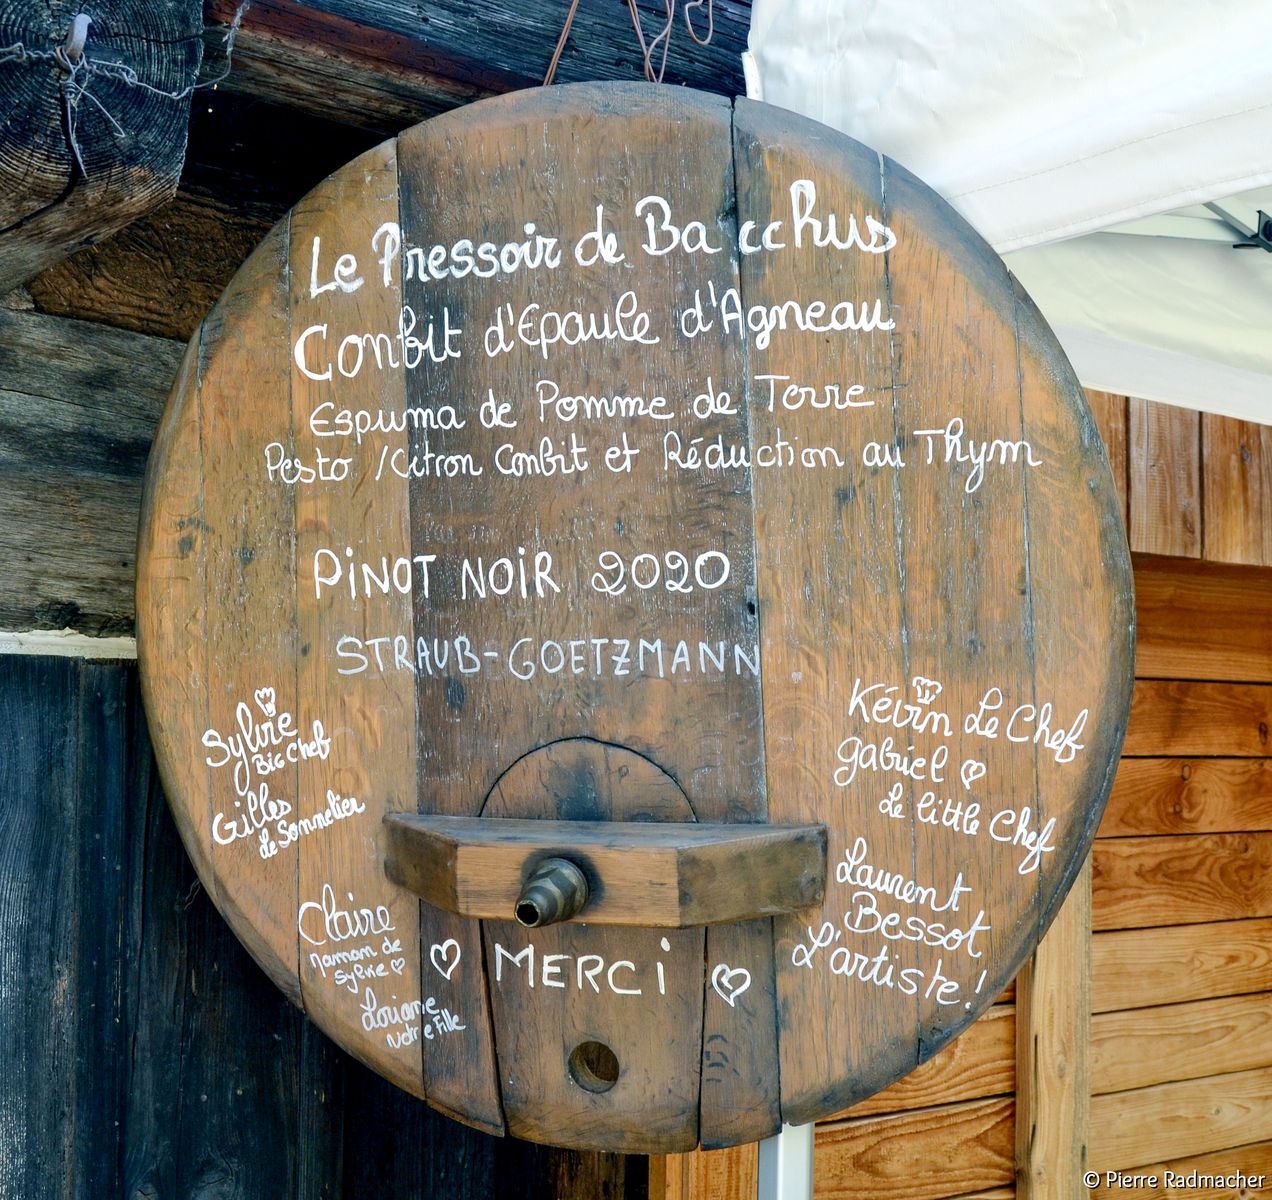 Le Pressoir de Bacchus
Confit d'Epaule d'Agneau
Espuma de Pomme de Terre
Pesto / Citron Confit et Réduction au Thym
PINOT NOIR 2020
STRAUB-GOETZMANN
Sylvie
Big Chef
Gilles
Le Sommelier
Claire
Maman de
Sylvie
Loriane
Notre Fille
MERCi
Kévin Le Chef
Gabriel
Le little Chef
Laurent
Bessot
L'artiste!
© Pierre Radmacher